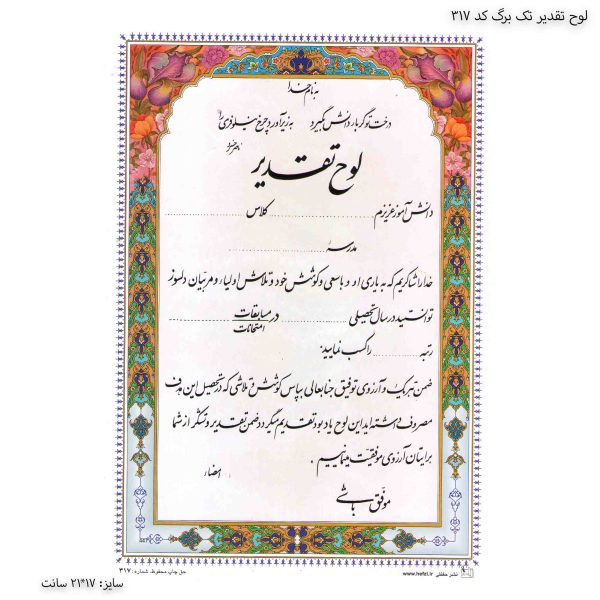 لوح تقدیر تک برگ کد ۳۱۷
به نام خدا
درخت تو گر بار دانش بگیرد به زیر آوری چرخ نیلوفری را
ناصر خسرو
لوح تقدیر
دانش آموز عزیزم ........ کلاس ........
مدرسه ........
خدا را شاکریم که به یاری او و با سعی و کوشش خود و تلاش اولیاء و مربیان دلسوز
توانستید در سال تحصیلی ........ در مسابقات
امتحانات
رتبه ........ را کسب نمایید.
ضمن تبریک و آرزوی توفیق جنابعالی بپاس کوشش و تلاشی که در تحصیل این هدف
مصروف داشته اید این لوح یادبود تقدیم میگردد ضمن تقدیر و تشکر از شما
برایتان آرزوی موفقیت مینماییم .
امضاء
موفق باشی
نشر حافظی www.hafzi.ir
حق چاپ محفوظ. شماره: ۳۱۷
سایز: ۱۷*۲۱ سانت